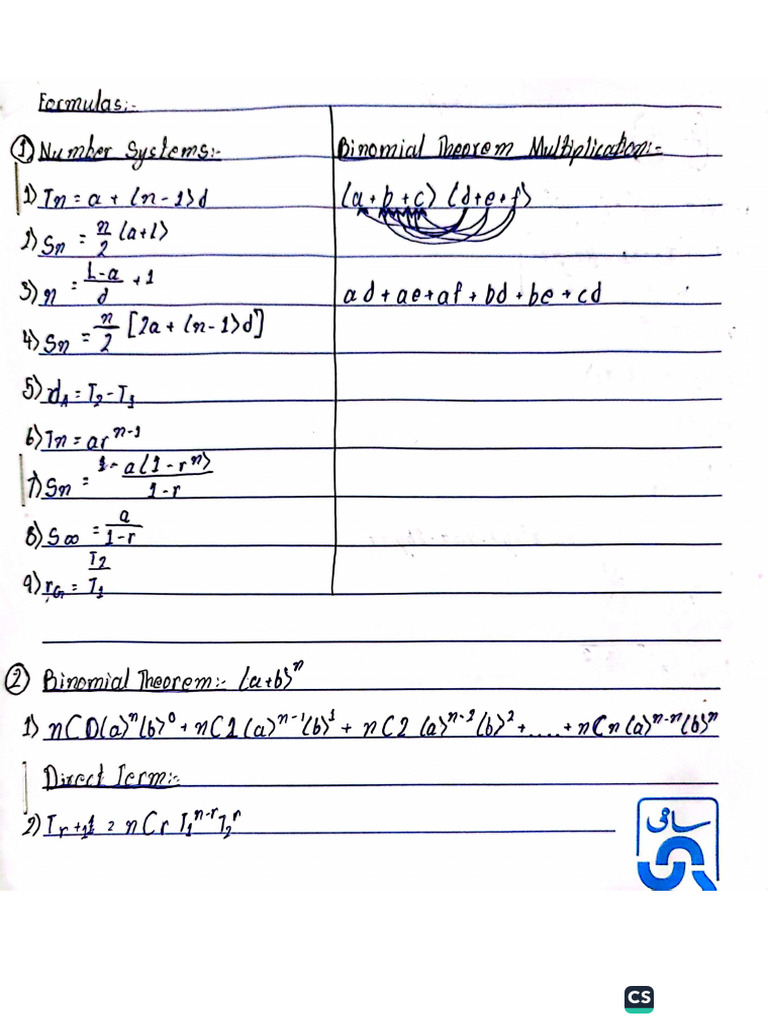 Formulas:-
① Number Systems:-
1) Tn = a + (n-1)d
2) Sn = n/2 (a+l)
3) n = L-a/d + 1
4) Sn = n/2 [2a + (n-1)d]
5) dA = T2 - T1
6) Tn = ar^n-1
7) Sn = a(1-r^n)/1-r
8) S∞ = a/1-r
9) rG = T2/T1
Binomial Theorem Multiplication:-
(a+b+c) (d+e+f)
ad+ae+af+bd+be+cd
② Binomial Theorem:- (a+b)^n
1) nC0(a)^n(b)^0 + nC1(a)^n-1(b)^1 + nC2(a)^n-2(b)^2 + .... + nCn(a)^n-n(b)^n
Direct Term:-
2) Tr+1 = nCr T1^n-r T2^r
ساقی
CS